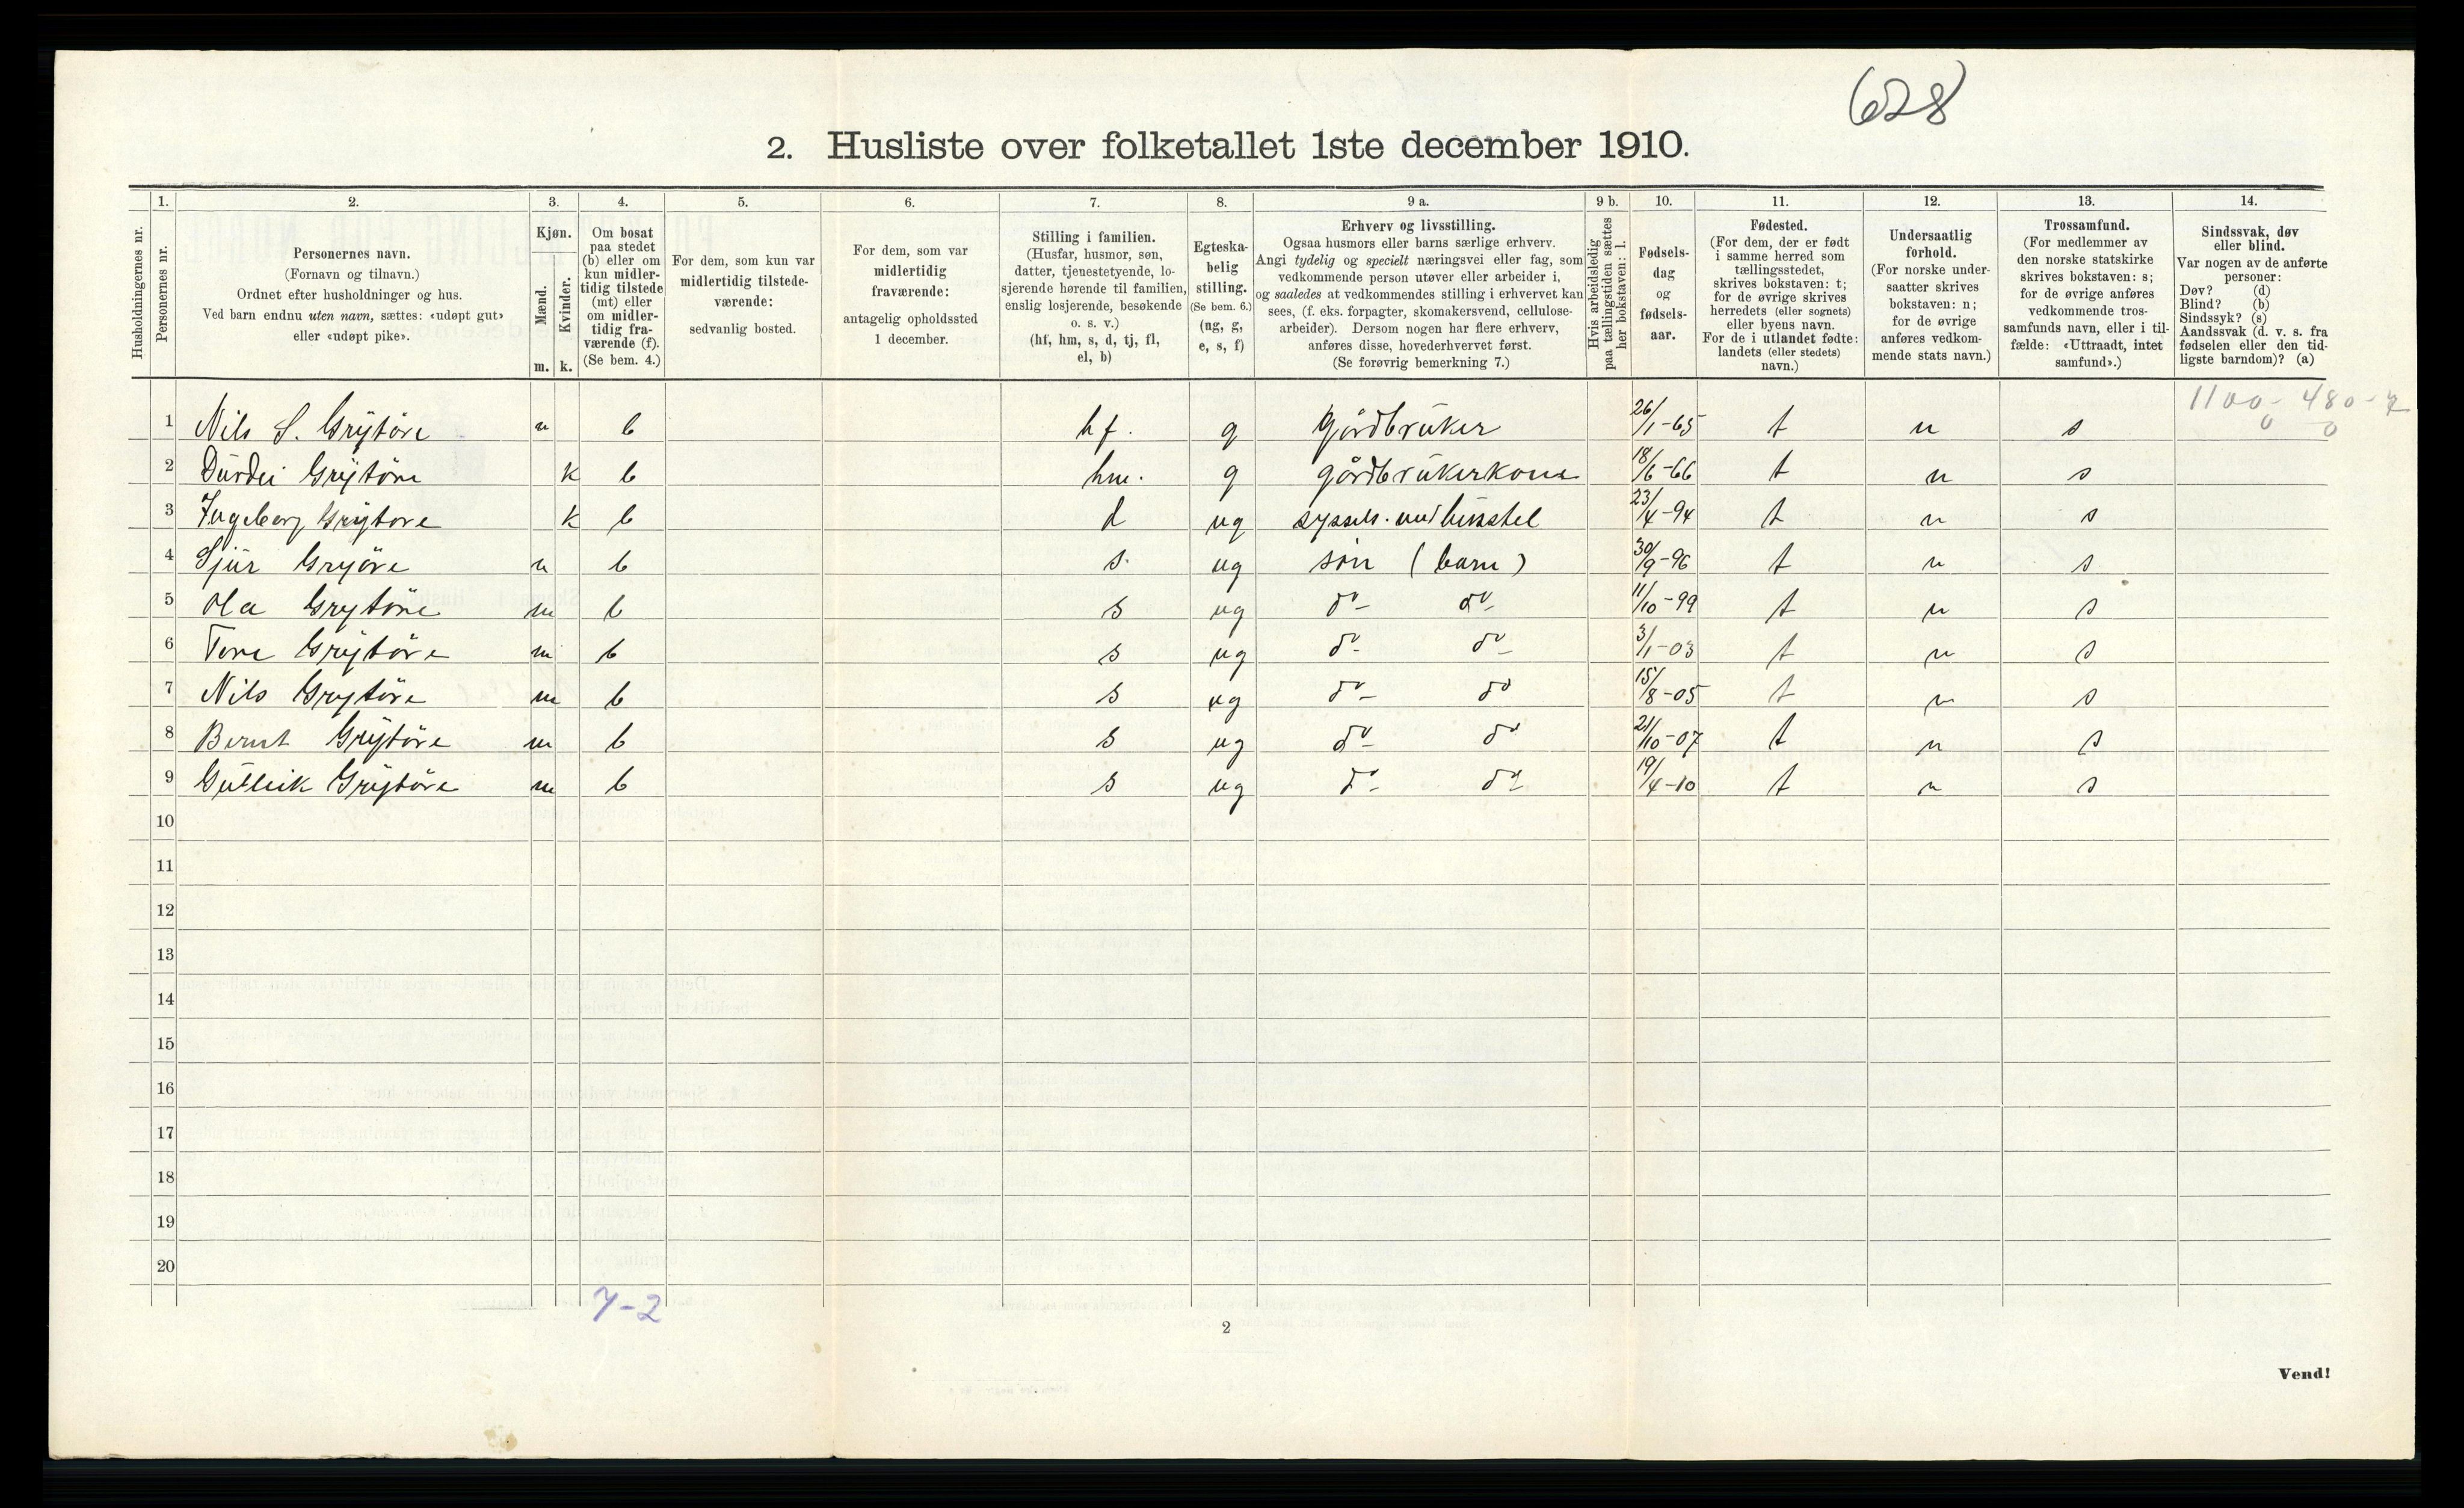 628
2. Husliste over folketallet 1ste december 1910.
Husholdningernes nr.
1.
Personernes nr.
2.
Personernes navn.
(Fornavn og tilnavn.)
Ordnet efter husholdninger og hus.
Ved barn endnu uten navn, sættes: «udøpt gut»
eller «udøpt pike».
3.
Kjøn.
Mænd.
m.
Kvinder.
k.
4.
Om bosat
paa stedet
(b) eller om
kun midler-
tidig tilstede
(mt) eller
om midler-
tidig fra-
værende (f).
(Se bem. 4.)
5.
For dem, som kun var
midlertidig tilstede-
værende:
sedvanlig bosted.
6.
For dem, som var
midlertidig
fraværende:
antagelig opholdssted
1 december.
7.
Stilling i familien.
(Husfar, husmor, søn,
datter, tjenestetyende, lo-
sjerende hørende til familien,
enslig losjerende, besøkende
o. s. v.)
(hf, hm, s, d, tj, fl,
el, b)
8.
Egteska-
belig
stilling.
(Se bem. 6.)
(ug, g,
e, s, f)
9 a.
Erhverv og livsstilling.
Ogsaa husmors eller barns særlige erhverv.
Angi tydelig og specielt næringsvei eller fag, som
vedkommende person utøver eller arbeider i,
og saaledes at vedkommendes stilling i erhvervet kan
sees, (f. eks. forpagter, skomakersvend, cellulose-
arbeider). Dersom nogen har flere erhverv,
anføres disse, hovederhvervet først.
(Se forøvrig bemerkning 7.)
9 b.
Hvis arbeidsledig
paa tællingstiden sættes
her bokstaven: l.
10.
Fødsels-
dag
og
fødsels-
aar.
11.
Fødested.
(For dem, der er født
i samme herred som
tællingsstedet,
skrives bokstaven: t;
for de øvrige skrives
herredets (eller sognets)
eller byens navn.
For de i utlandet fødte:
landets (eller stedets)
navn.)
12.
Undersaatlig
forhold.
(For norske under-
saatter skrives
bokstaven: n;
for de øvrige
anføres vedkom-
mende stats navn.)
13.
Trossamfund.
(For medlemmer av
den norske statskirke
skrives bokstaven: s;
for de øvrige anføres
vedkommende tros-
samfunds navn, eller i til-
fælde: «Uttraadt, intet
samfund».)
14.
Sindssvak, døv
eller blind.
Var nogen av de anførte
personer:
Døv? (d)
Blind? (b)
Sindssyk? (s)
Aandssvak (d. v. s. fra
fødselen eller den tid-
ligste barndom)? (a)
1100- 480-7
0 0
1 Nils S. Grytöre m b hf. g gårdbruker 26/1-65 t n s
2 Durdei Grytöre k b hm. g gårdbrukerkone 18/6-66 t n s
3 Ingeborg Grytöre k b d ug syssels. med husstel 23/4-94 t n s
4 Sjur Gryöre m b s. ug sön (barn) 30/9-96 t n s
5 Ola Grytöre m b s ug do do 11/10-99 t n s
6 Tore Grytöre m b s ug do do 3/1-03 t n s
7 Nils Grytöre m b s ug do do 15/8-05 t n s
8 Bernt Grytöre m b s ug do do 21/10-07 t n s
9 Gutleik Grytöre m b s ug do do 19/4-10 t n s
10
11
12
13
14
15
16
17
18
19
20
7-2
2
Vend!